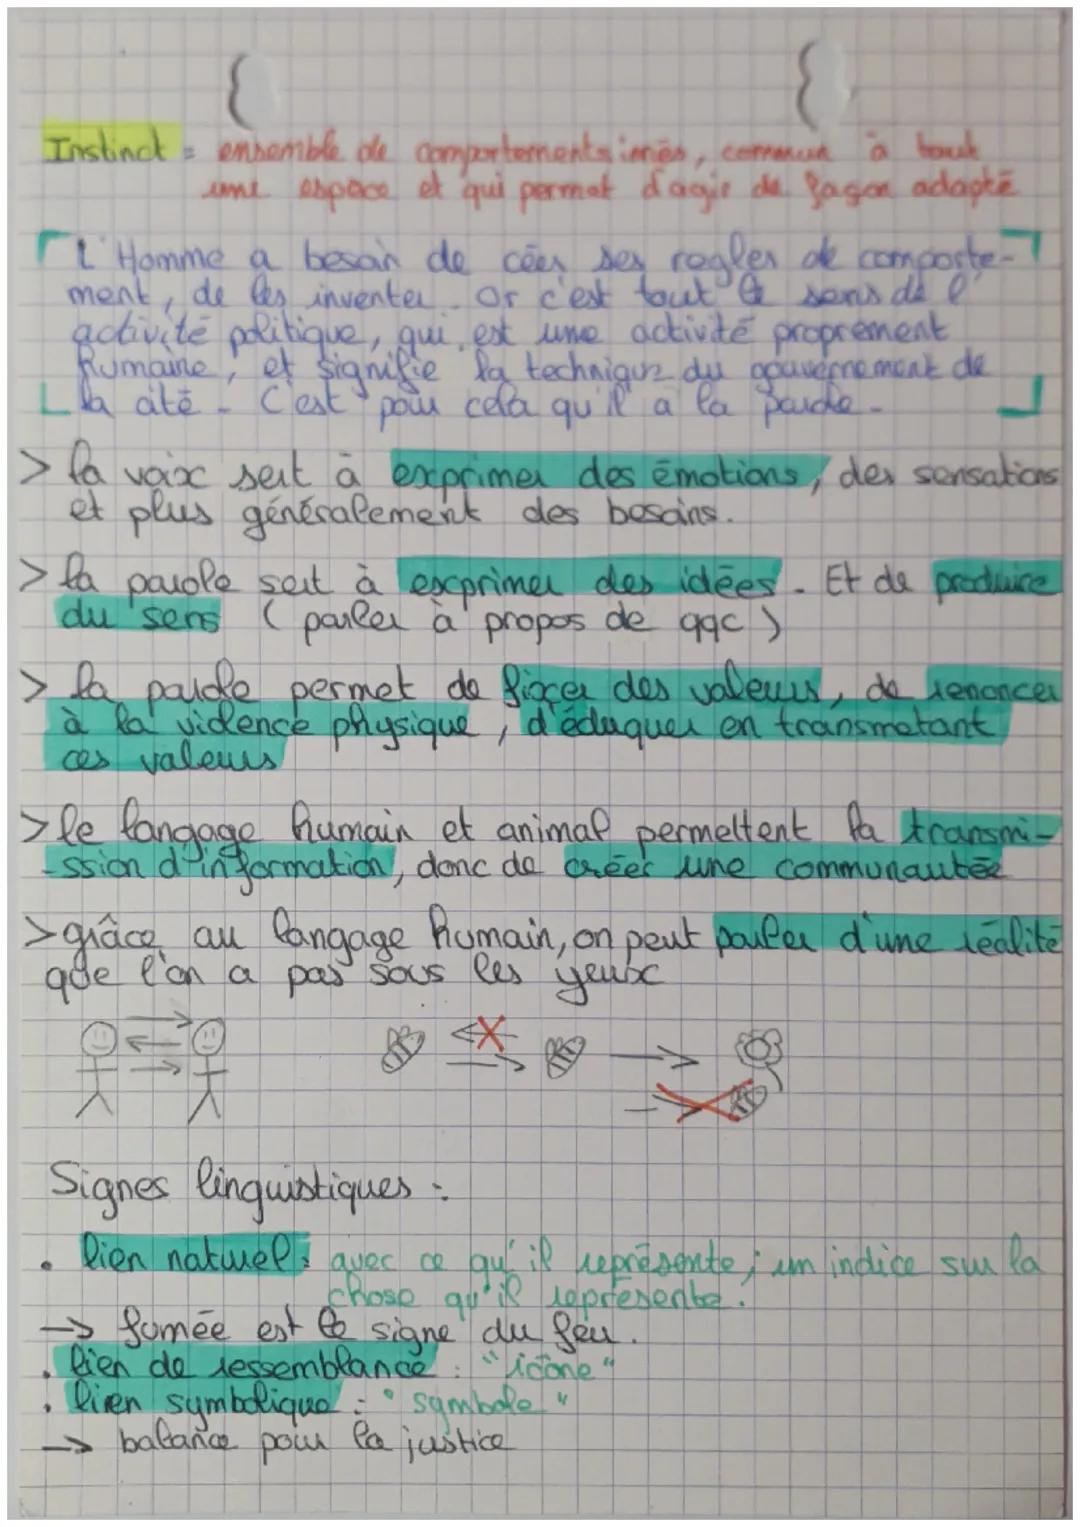 Instinct = ensemble de comportements innés, commun à tout
une espace et qui permet d'agir de façon adapté
L'Homme a besoin de céer ses regles de comporte-
ment, de les inventer. Or c'est tout le sens de l'
activité politique, qui est une activité proprement
humaine, et signifie la technique du gouvernement de
la cité. C'est pour cela qu'il a la parole.
> la voix sert à exprimer des émotions, des sensations
et plus généralement des besoins.
> la parole sert à exprimer des idées. Et de produire
du sens (parler à propos de qqc)
> la parole permet de fixer des valeurs, de renoncer
à la violence physique, d'éduquer en transmetant
ces valeurs
> le langage humain et animal permettent la transmi-
-ssion d'information, donc de créer une communautée
> grâce au langage humain, on peut parler d'une réalité
que l'on a pas sous les yeux
Signes linguistiques :
• lien naturel : avec ce qu'il représente ; un indice sur la
chose qu'il représente.
→ fumée est le signe du feu.
• lien de ressemblance : "icône"
• lien symbolique : "symbole"
→ balance pour la justice